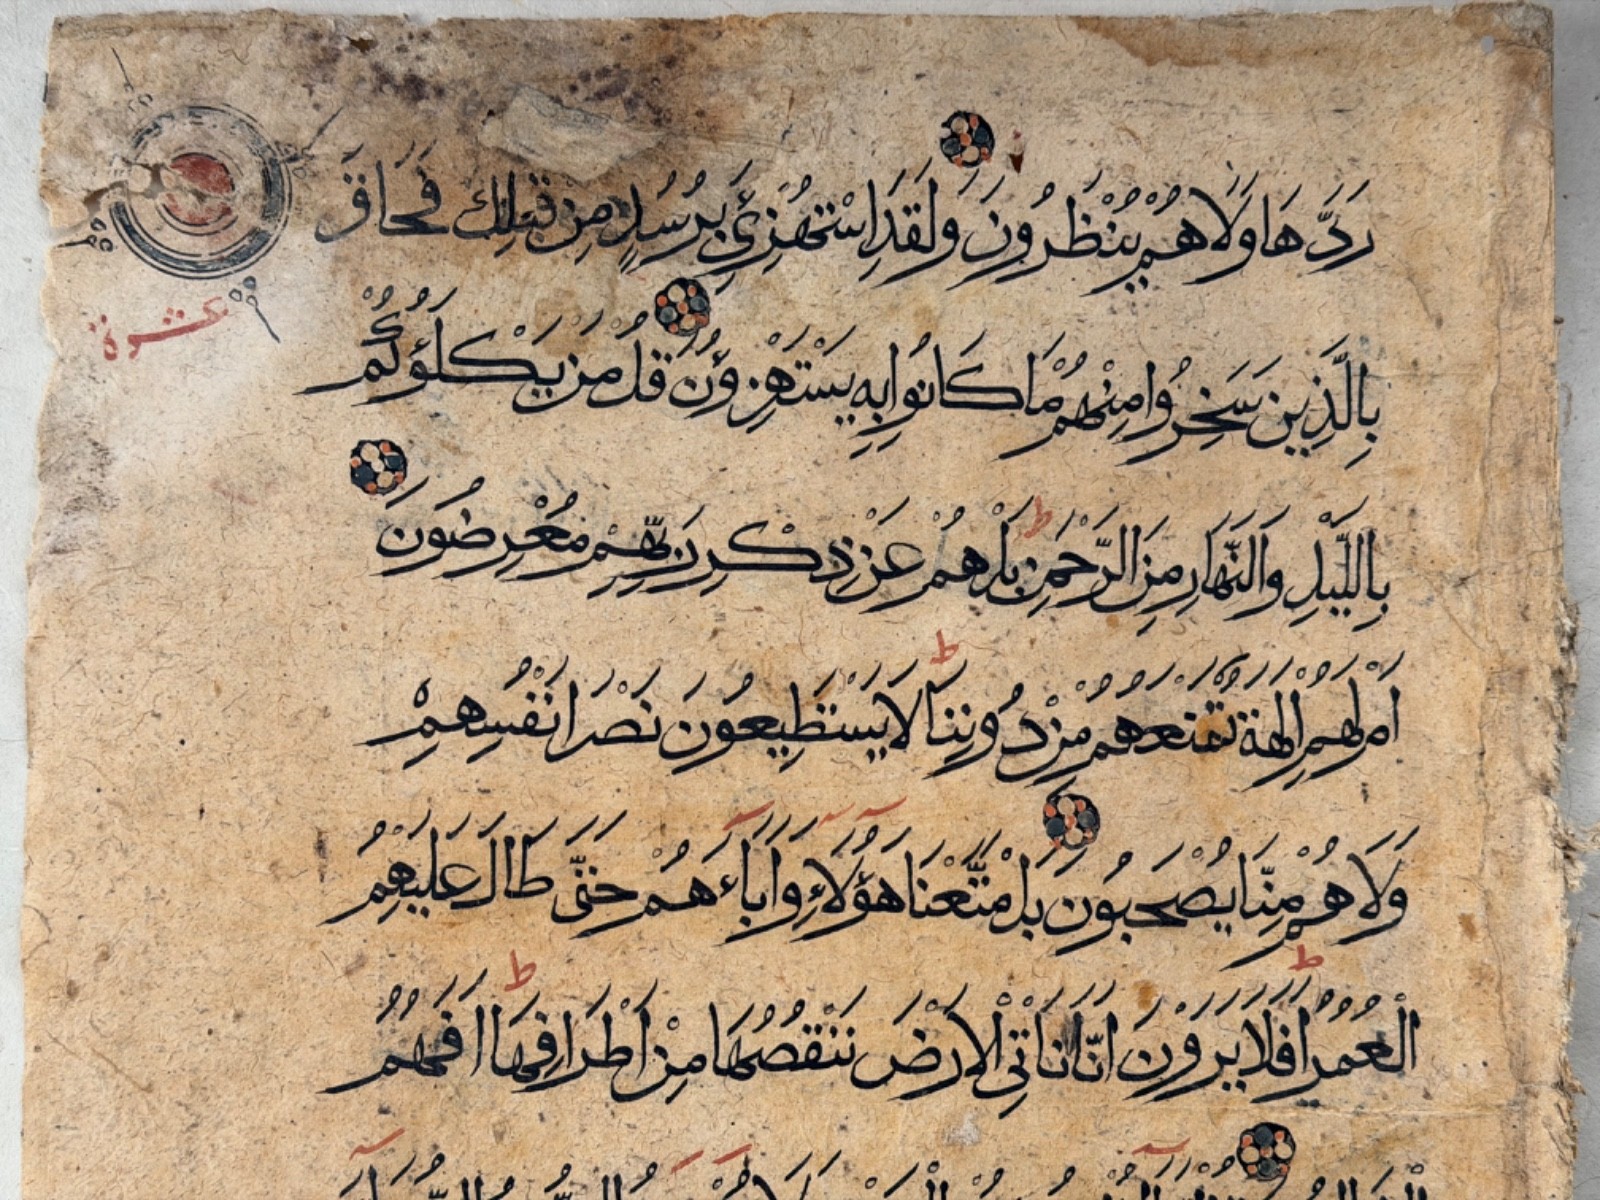 رَدَّهَا وَلَا هُمْ يُنْظَرُونَ وَلَقَدِ اسْتُهْزِئَ بِرُسُلٍ مِنْ قَبْلِكَ فَحَاقَ
عشرة
بِالَّذِينَ سَخِرُوا مِنْهُمْ مَا كَانُوا بِهِ يَسْتَهْزِؤُنَ قُلْ مَنْ يَكْلَؤُكُمْ
بِاللَّيْلِ وَالنَّهَارِ مِنَ الرَّحْمَنِ ط بَلْ هُمْ عَنْ ذِكْرِ رَبِّهِمْ مُعْرِضُونَ
اَمْ لَهُمْ اٰلِهَةٌ تَمْنَعُهُمْ مِنْ دُونِنَا ط لَا يَسْتَطِيعُونَ نَصْرَ اَنْفُسِهِمْ
وَلَا هُمْ مِنَّا يُصْحَبُونَ بَلْ مَتَّعْنَا هٰؤُلَاءِ وَاٰبَاءَهُمْ حَتَّى طَالَ عَلَيْهِمُ
الْعُمُرُ ط اَفَلَا يَرَوْنَ اَنَّا نَاْتِي الْاَرْضَ نَنْقُصُهَا مِنْ اَطْرَافِهَا ط اَفَهُمُ